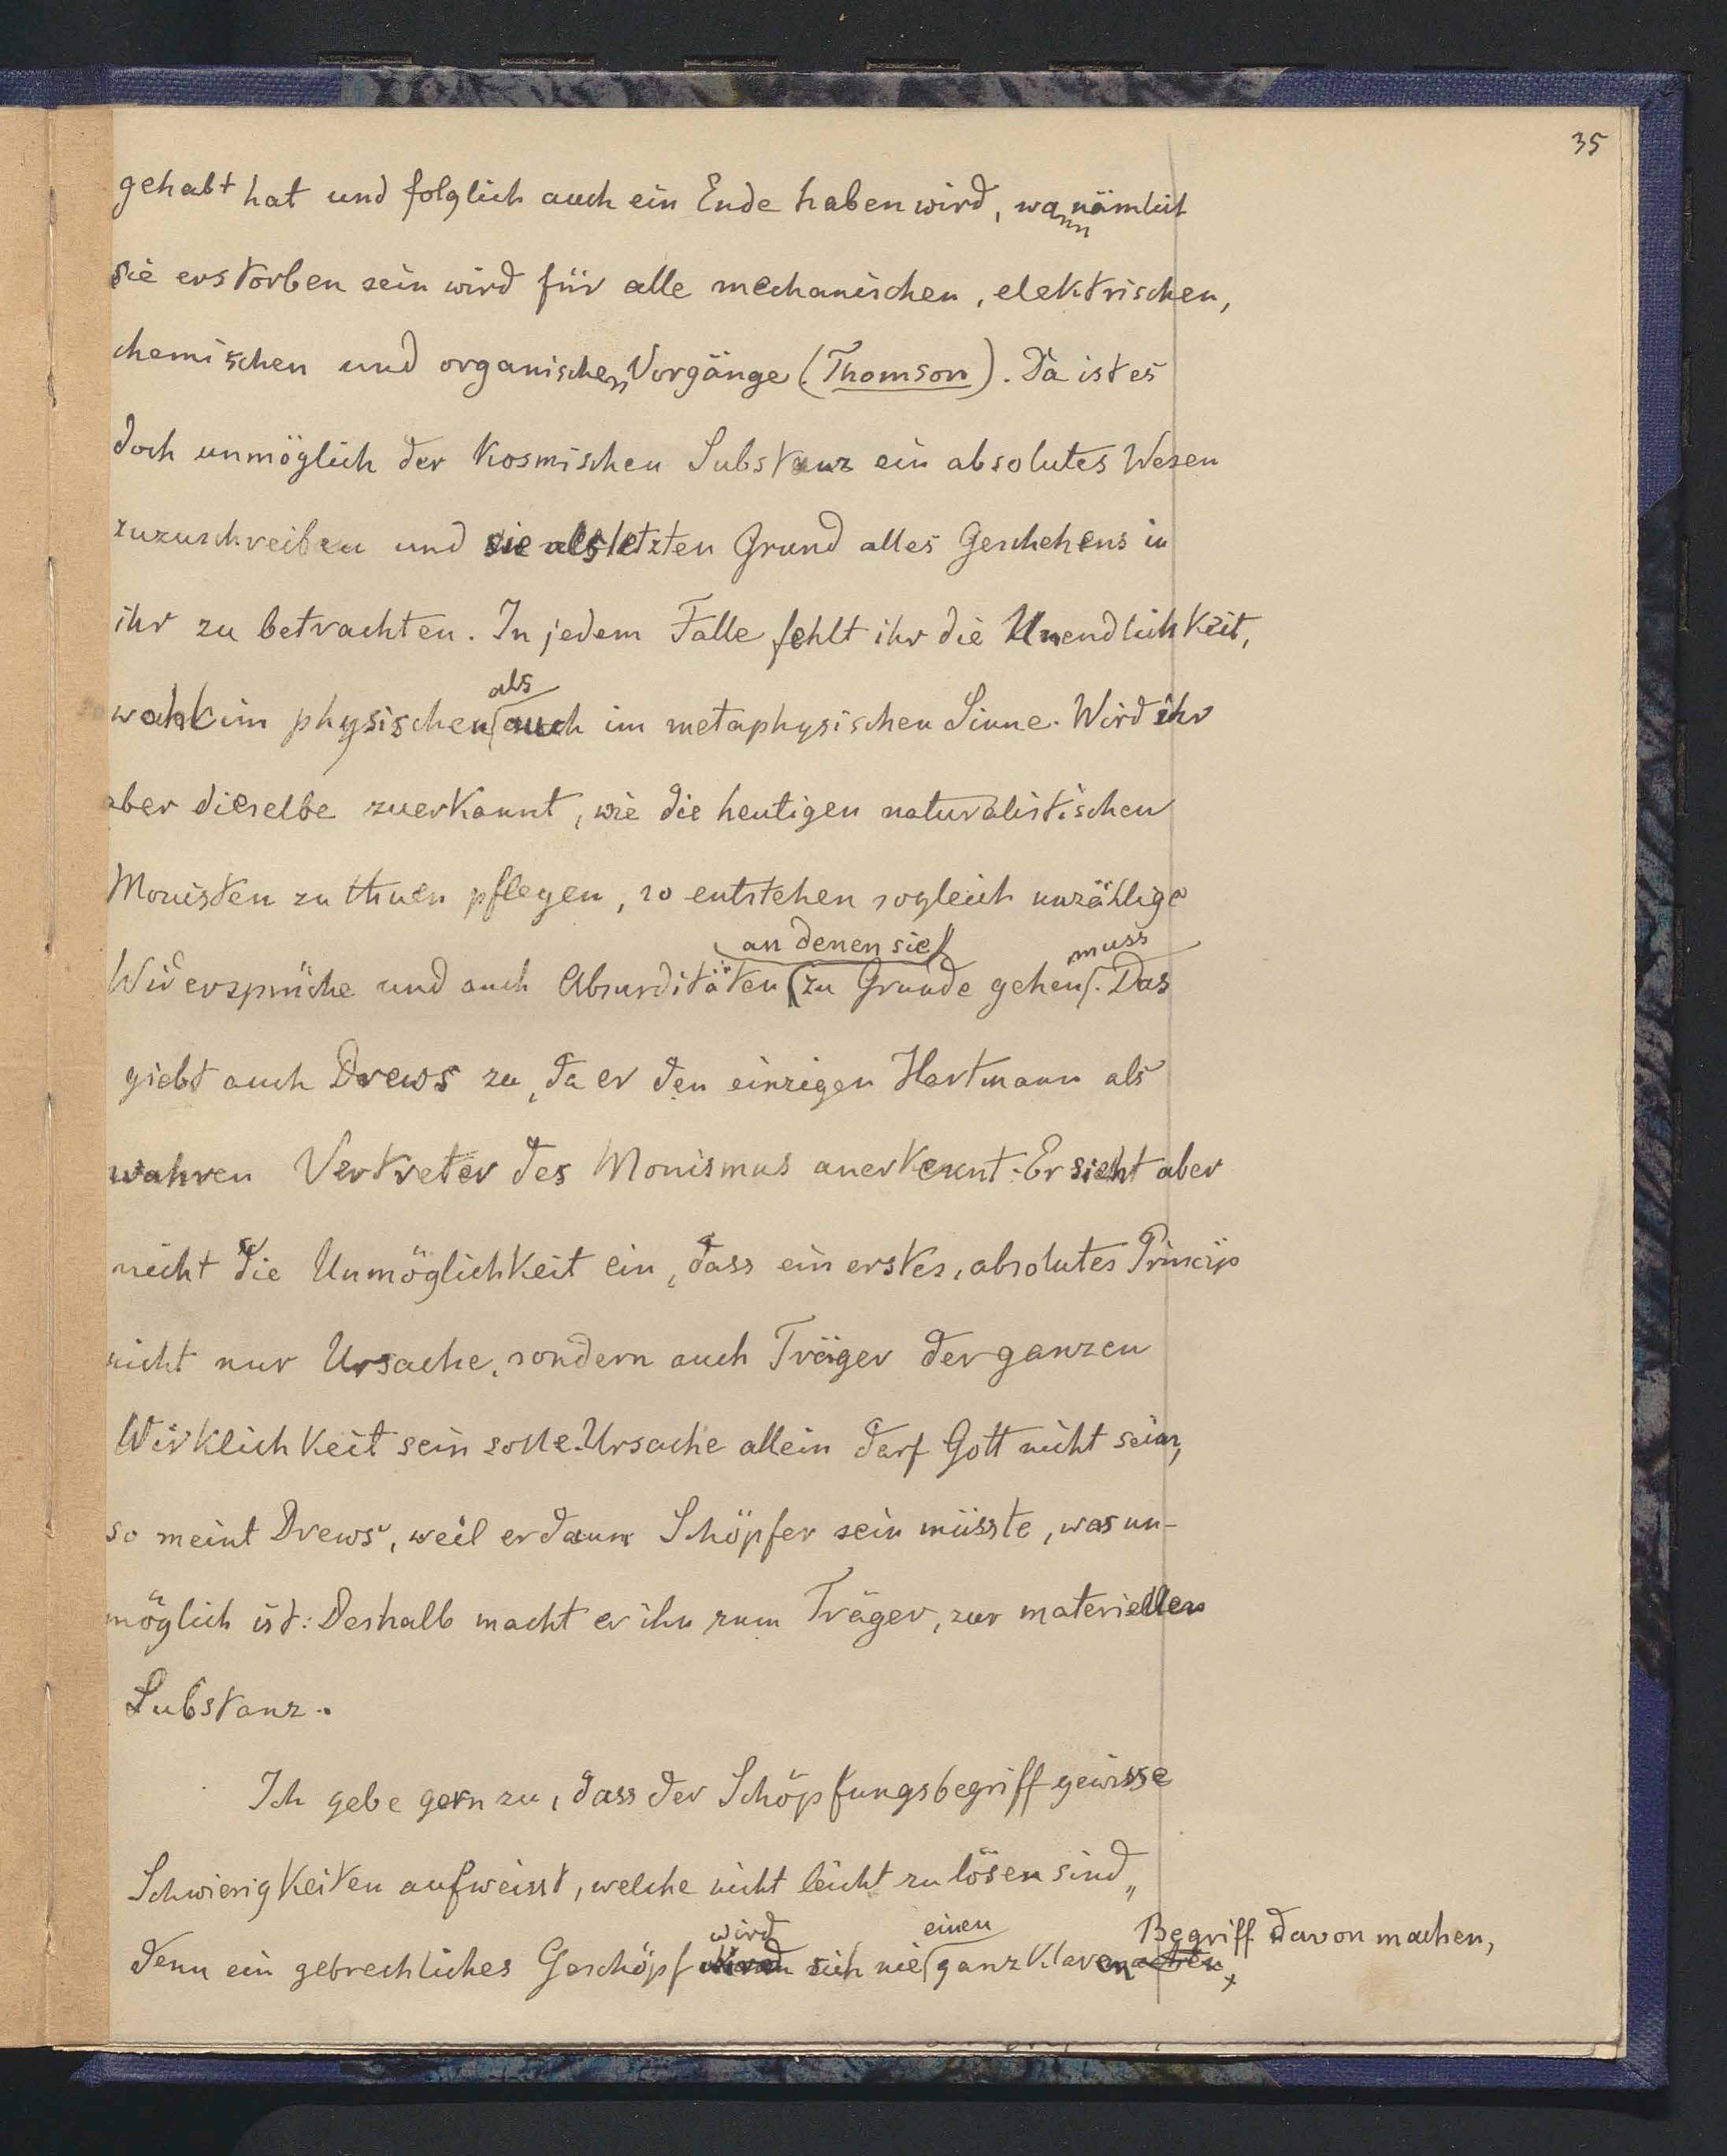 35
gehabt hat und folglich auch ein Ende haben wird, wann nämlich
sie erstorben sein wird für alle mechanischen, elektrischen,
chemischen und organischen Vorgänge (Thomson). Da ist es
doch unmöglich der kosmischen Substanz ein absolutes Wesen
zuzuschreiben und sie als letzten Grund alles Geschehens in
ihr zu betrachten. In jedem Falle fehlt ihr die Unendlichkeit,
als
sowohl im physischen auch im metaphysischen Sinne. Wird ihr
aber dieselbe zuerkannt, wie die heutigen naturalistischen
Monisten zu thuen pflegen, so entstehen sogleich unzählige
an denen sie muss
Widersprüche und auch Absurditäten zu Grunde gehen. Das
giebt auch Drews zu, da er den einzigen Hartmann als
wahren Vertreter des Monismus anerkennt. Er sieht aber
nicht die Unmöglichkeit ein, dass ein erstes, absolutes Princip
nicht nur Ursache, sondern auch Träger der ganzen
Wirklichkeit sein solle. Ursache allein darf Gott nicht sein,
so meint Drews, weil er dann Schöpfer sein müsste, was un-
möglich ist: Deshalb macht er ihn zum Träger, zur materiellen
Substanz.
Ich gebe gern zu, dass der Schöpfungsbegriff gewisse
Schwierigkeiten aufweisst, welche nicht leicht zu lösen sind,,
wird einen Begriff davon machen,
denn ein gebrechliches Geschöpf sich nie ganz klaren